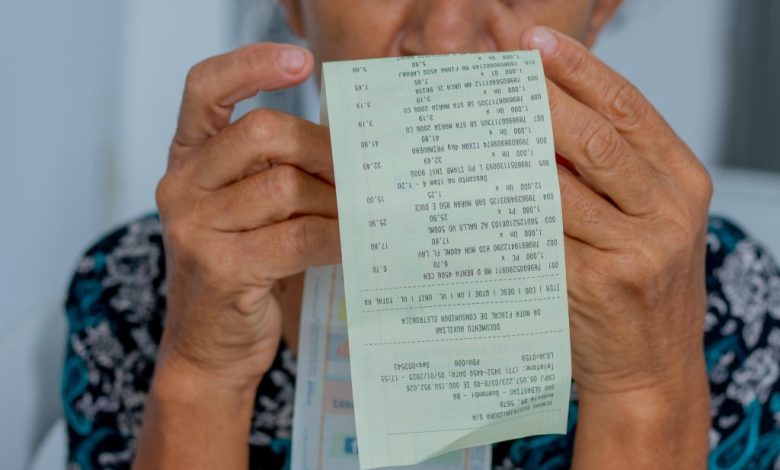 SENDAS DISTRIBUIDORA S/A
Rodovia BR, 5678
SAO SEBASTIAO - Guanambi - BA
CNPJ 06.057.223/0378-49 IE 000.150.952.028
Telefone: (77) 3452-4450 DATA: 05/01/2023 - 17:55
LOJA-0156 PDV-008 Seq=093543
DOCUMENTO AUXILIAR
DA NOTA FISCAL DE CONSUMIDOR ELETRONICA
ITEM | COD | DESC | QTDE | UN | VL. UNIT. | VL. TOTAL R$
001 7896005280911 MB D BENTA 450G CEN
1,000 PC x 6,70 6,70
002 7898919412200 MON HID 400ML FL LAV
1,000 Un x 17,60 17,60
003 5601252106103 AZ GALLO VD 500ML
1,000 Pc x 25,90 25,90
004 7896394803135 SAB MARAN 85G E DOCE
12,000 Un x 1,25 15,00
Desconto no item 4 - 1,20
005 7898051130093 L PO ITAMB INST 800G
1,000 Un x 32,49 32,49
TIXAN 4kg PRIMAVERA
1,000 Un x 41,80 41,80
007 7898906717305 SB STA MARIA 200G CO
1,000 Un x 3,19 3,19
008 7898906717305 SB STA MARIA 200G CO
1,000 Un x 3,19 3,19
009 AN URCA 2L BRISA
1,000 Gl x 7,65 7,65
010 MB FINNA 450G LARANJ
1,000 Un x 5,80 5,80